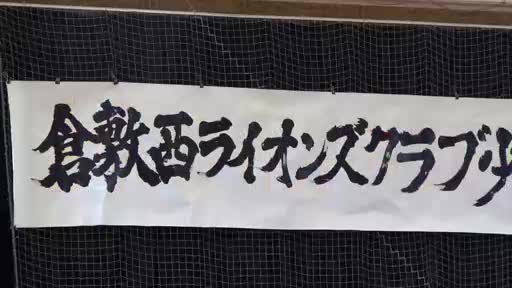 倉敷西ライオンズクラブ